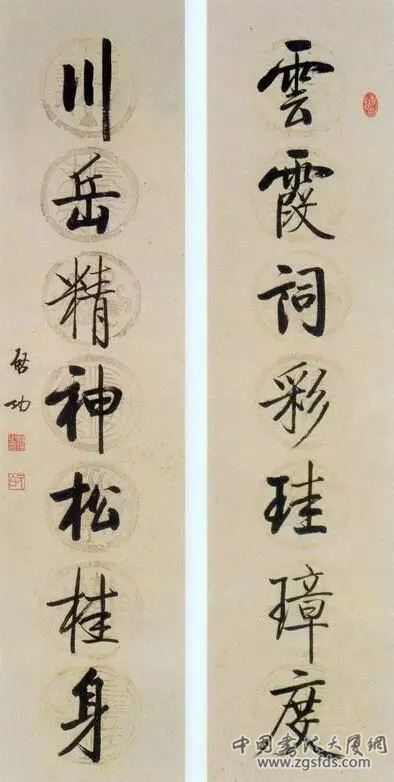 雲霞詞彩珪璋度
川岳精神松桂身
啓功
中国书法大厦网
www.zgsfds.com